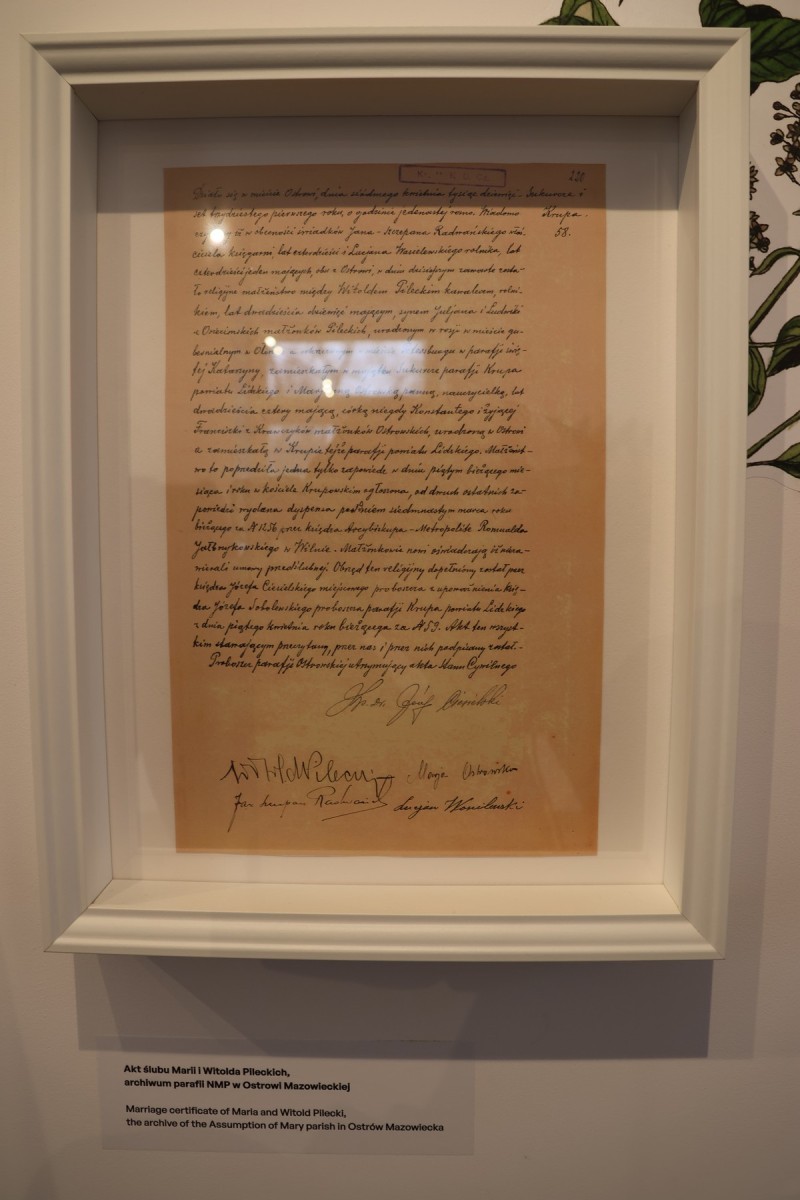 220
Działo się w mieście Ostrowi, dnia siódmego kwietnia tysiąc dziewięć-
Sukurcze i
set trzydziestego pierwszego roku, o godzinie jedenastej rano. Wiadomo
Krupa.
w obecności świadków Jana-Szczepana Radwańskiego wła-
58.
ściciela księgarni, lat czterdzieści i Lucjana Wasilewskiego rolnika, lat
czterdzieści jeden mających, obu z Ostrowi, w dniu dzisiejszym zawarte zosta-
ło religijne małżeństwo między Witoldem Pileckim kawalerem, rolni-
kiem, lat dwadzieścia dziewięć mającym, synem Juljana i Ludwiki
z Osiecimskich małżonków Pileckich, urodzonym w rosji w mieście gu-
bernialnym w w parafji świę-
tej Katarzyny, zamieszkałym w majątku Sukurcze parafji Krupa
powiatu Lidzkiego i panną, nauczycielką, lat
dwadzieścia cztery mającą, córką niegdy Konstantego i żyjącej
Franciszki z Krawczyków małżonków Ostrowskich, urodzoną w Ostrowi
a zamieszkałą w Krupie tejże parafji powiatu Lidzkiego. Małżeńst-
wo to poprzedziła jedna tylko zapowiedź w dniu piątym bieżącego mie-
siąca i roku w kościele Krupowskim ogłoszona, od dwóch ostatnich za-
powiedzi wydana dyspensa pod dniem siedmnastym marca roku
bieżącego za N 1256 przez księdza Arcybiskupa-Metropolitę Romualda
Jałbrzykowskiego w Wilnie. Małżonkowie nowi oświadczają iż nie za-
wierali umowy przedślubnej. Obrzęd ten religijny dopełniony został przez
księdza Józefa Ciesielskiego miejscowego proboszcza z upoważnienia księ-
dza Józefa Sobolewskiego proboszcza parafji Krupa powiatu Lidzkiego
z dnia piątego kwietnia roku bieżącego za N 59. Akt ten wszyst-
kim stawającym przeczytany, przez nas i przez nich podpisany został.-
Proboszcz parafji Ostrowskiej utrzymujący akta Stanu Cywilnego
Ks. Dr. Józef Ciesielski
Witold Pilecki Marja Ostrowska
Jan Szczepan Radwański Lucjan Wasilewski
Akt ślubu Marii i Witolda Pileckich,
archiwum parafii NMP w Ostrowi Mazowieckiej
Marriage certificate of Maria and Witold Pilecki,
the archive of the Assumption of Mary parish in Ostrów Mazowiecka